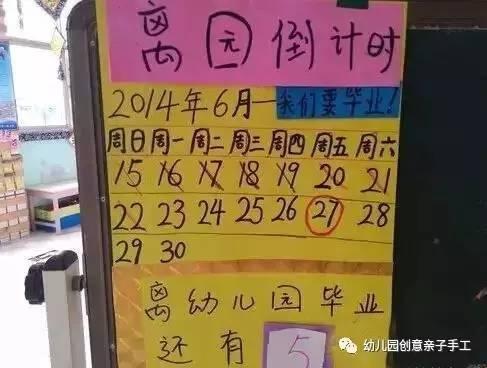 离园倒计时
2014年6月—我们要毕业!
周日 周一 周二 周三 周四 周五 周六
15 16 17 18 19 20 21
22 23 24 25 26 27 28
29 30
离幼儿园毕业
还有 5
幼儿园创意亲子手工